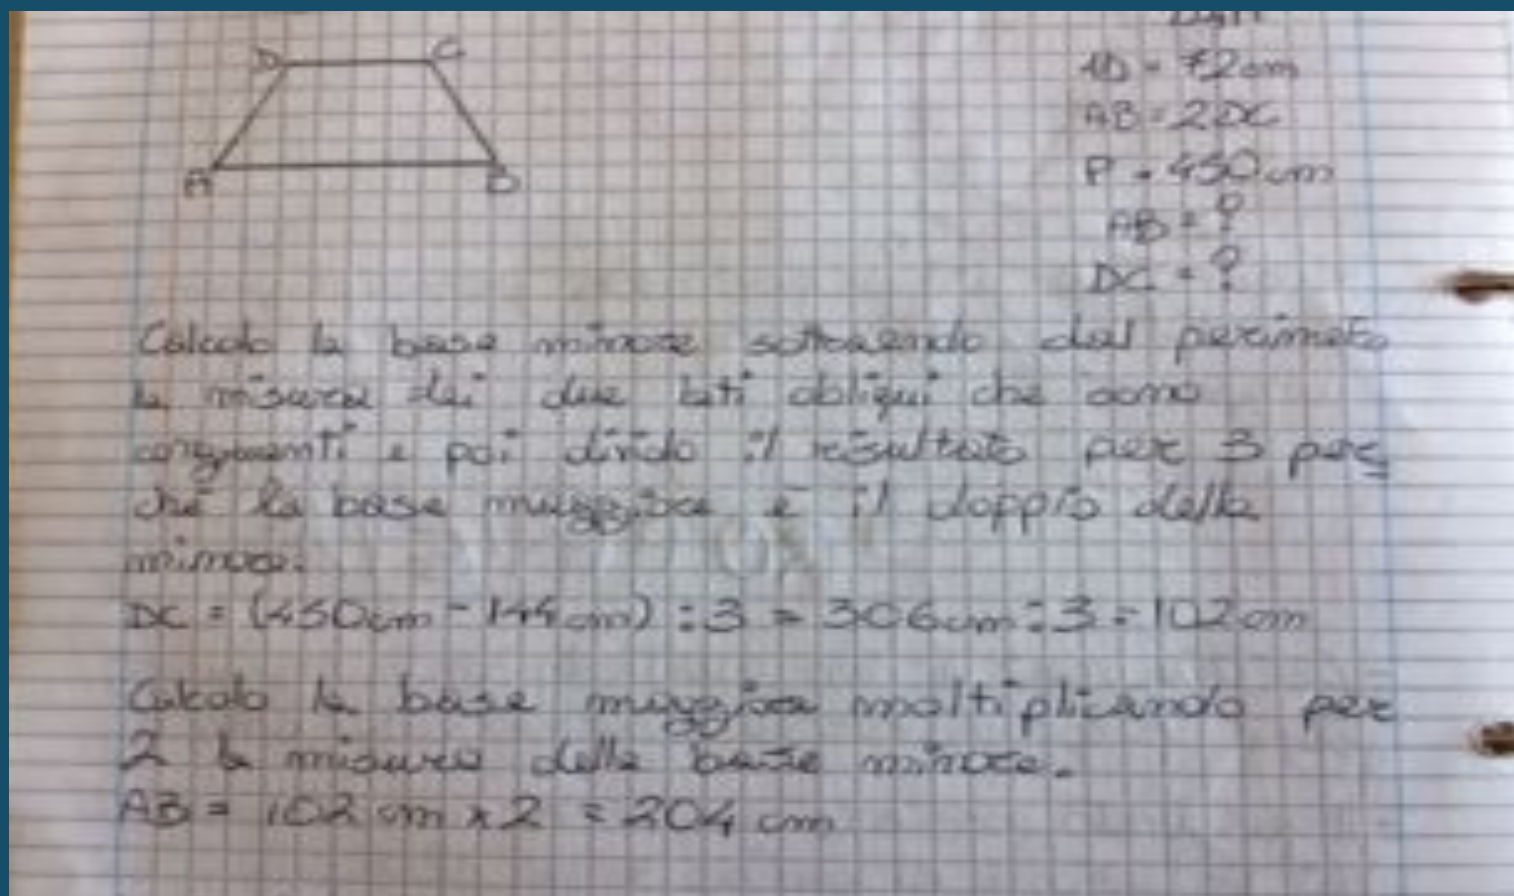 Dati
D C
AD = 72cm
AB = 2DC
P = 450cm
A B
AB = ?
DC = ?
Calcolo la base minore sottraendo dal perimetro
la misura dei due lati obliqui che sono
congruenti e poi divido il risultato per 3 per=
ché la base maggiore è il doppio della
minore.
DC = (450cm - 144cm) : 3 = 306cm : 3 = 102cm
Calcolo la base maggiore moltiplicando per
2 la misura della base minore.
AB = 102 cm x 2 = 204 cm